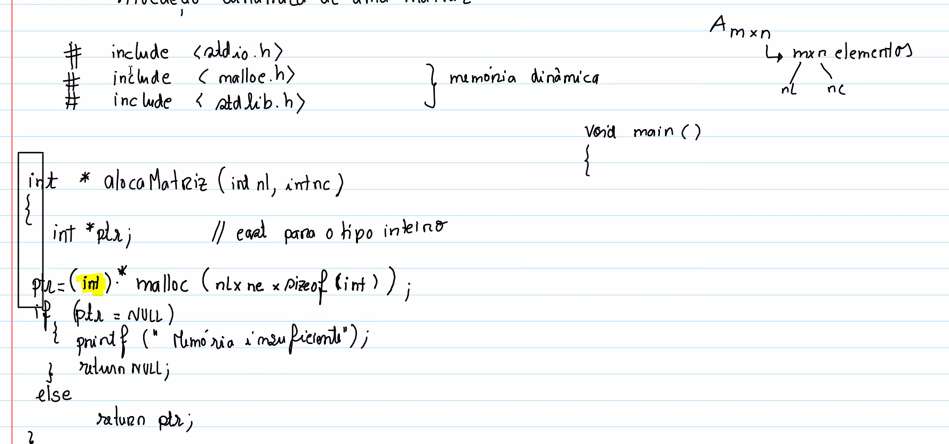 # include <stdio.h>
# include <malloc.h>
# include <stdlib.h>
} memória dinâmica
A m×n
↳ m×n elementos
nl nc
void main ()
{
int * alocaMatriz (int nl, int nc)
{
int *ptr; // cast para o tipo inteiro
ptr = (int).* malloc (nl x nc x sizeof (int));
if (ptr = NULL)
{ printf (" Memória insuficiente");
return NULL;
}
else
return ptr;
}